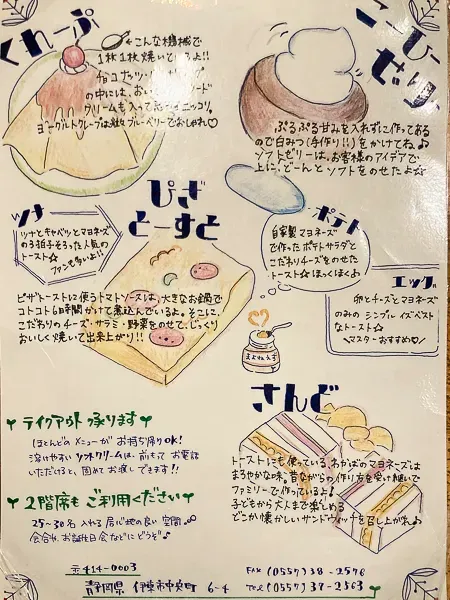 くれーぷ
←こんな機械で
1枚1枚焼いているよ!!
チョコナッツ・
の中には、
クリームも入って
ヨーグルトクレープは
ブルーベリーでおしゃれ♡
こーひー
ゼリー
ぷるぷる甘みを入れずに作ってある
ので白みつ(手作り!!)をかけてね♪
ソフトゼリーは、お客様のアイデアで
上に、どーんと ソフトをのせたよ☆
ツナ
ツナとキャベツとマヨネーズ
の3拍子そろった人気の
トースト☆
ファンも多いよ!!
ぴざ
とーすと
ピザトーストに使うトマトソースは、大きなお鍋で
コトコト6時間かけて煮込んでいるよ。そこに、
こだわりのチーズ・サラミ・野菜をのせて、じっくり
おいしく焼いて出来上がり!!
ポテト
自家製マヨネーズ
で作ったポテトサラダと
こだわりチーズをのせた
トースト☆ほっくほく♪
エッグ
卵とチーズとマヨネーズ
のみの シンプル イズ ベスト
なトースト☆
＼マスターおすすめ♡／
まよねえず
さんど
トーストにも使っている、わかばのマヨネーズは
まろやかな味。昔ながらの作り方を受け継いで
ファミリーで作っているよ♪
子どもから大人まで楽しめる
どこか懐かしいサンドウィッチを召し上がれ♪
テイクアウト承ります
ほとんどのメニューが お持ち帰りOK!
溶けやすいソフトクリームは、前もって お電話
いただけると、固めてお渡しできます!!
2階席も ご利用ください
25〜30名 入れる 居心地の良い 空間♪
会合や、お誕生日会などに どうぞ♪
〒414-0003
静岡県 伊東市中央町 6-4
FAX (0557)38-2576
Tel (0557)37-2563